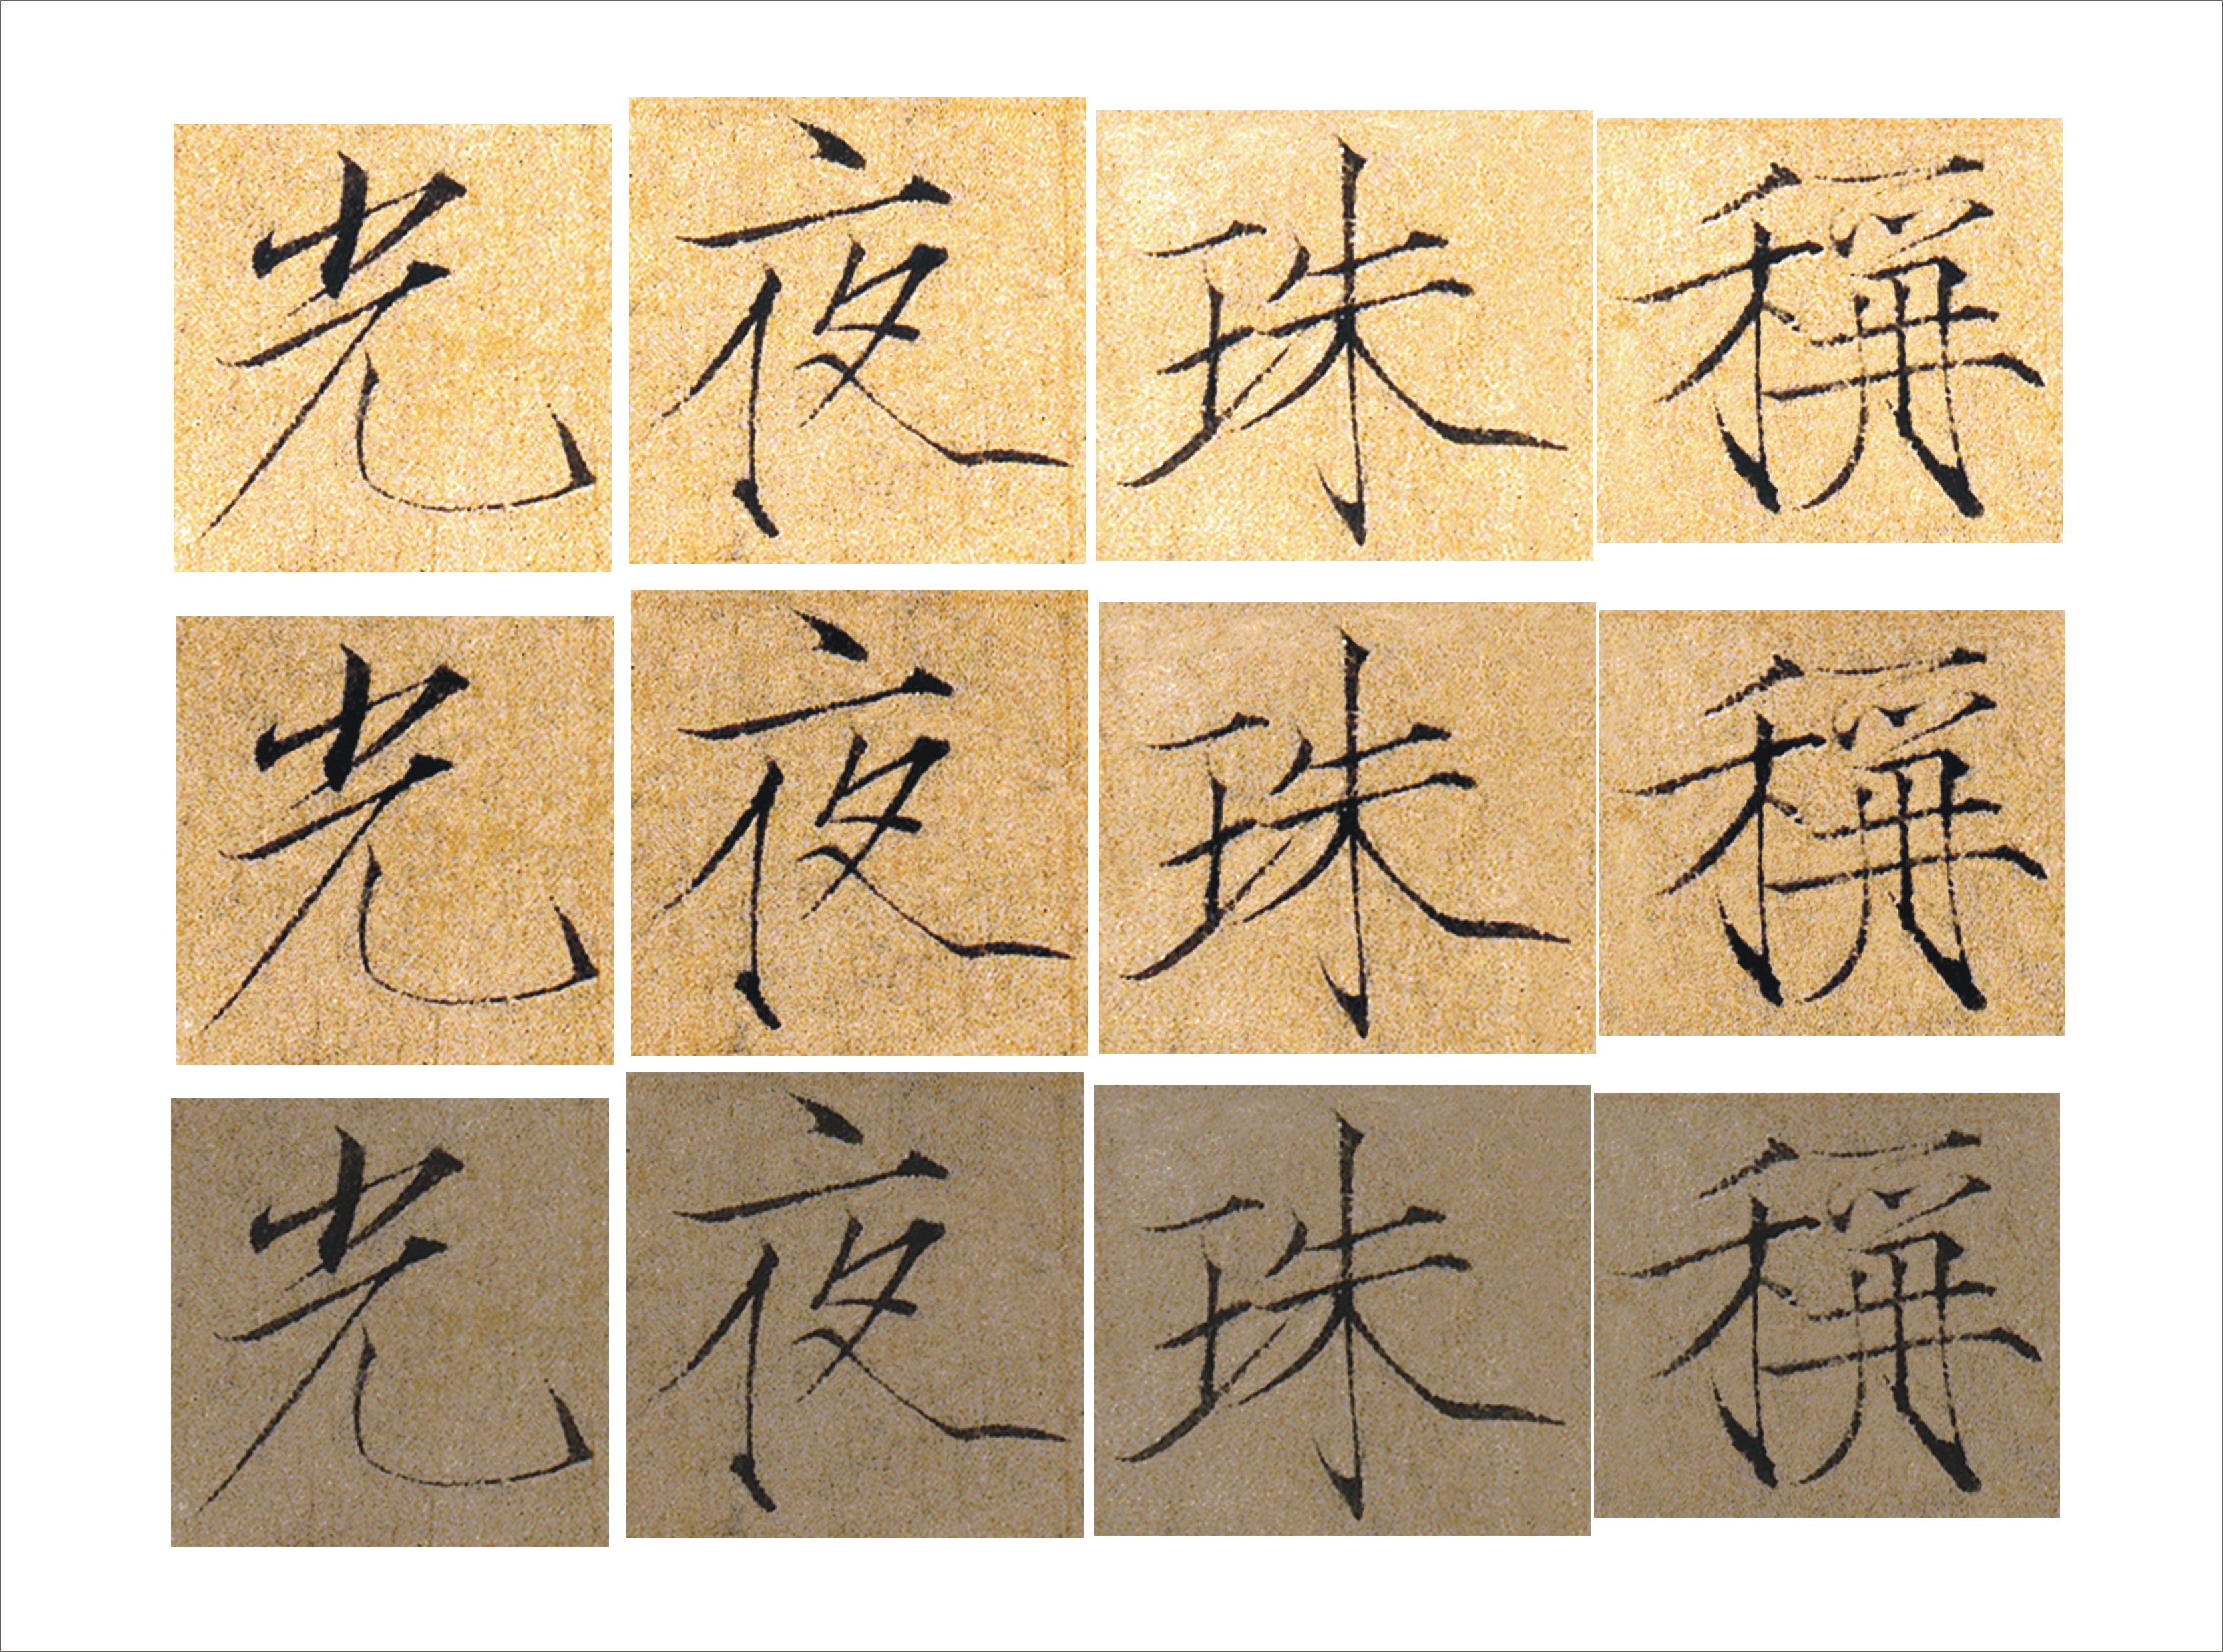 光夜珠稱
光夜珠稱
光夜珠稱